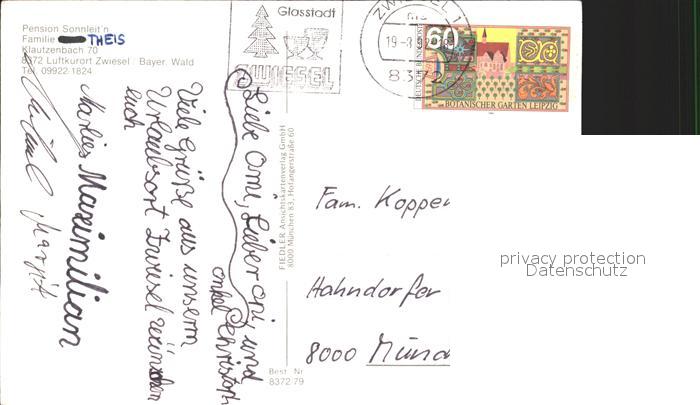 Pension Sonnleit'n
Familie THEIS
Klautzenbach 70
8372 Luftkurort Zwiesel / Bayer. Wald
Tel. 09922-1824
Glasstadt
ZWIESEL
ZWIESEL 1
8372
60
DEUTSCHE BUNDESPOST
BOTANISCHER GARTEN LEIPZIG
Liebe Omi, Lieber Opi, und
onkel Christoph
Viele Grüße aus unserm
Urlaubsort Zwiesel wünschen
euch
Marlies Maximilian
Margit
FIEDLER Ansichtskartenverlag GmbH
8000 München 83, Hofangerstraße 60
Best. Nr
8372/79
Fam. Kopper
Hahndorfer
8000 Münc
privacy protection
Datenschutz